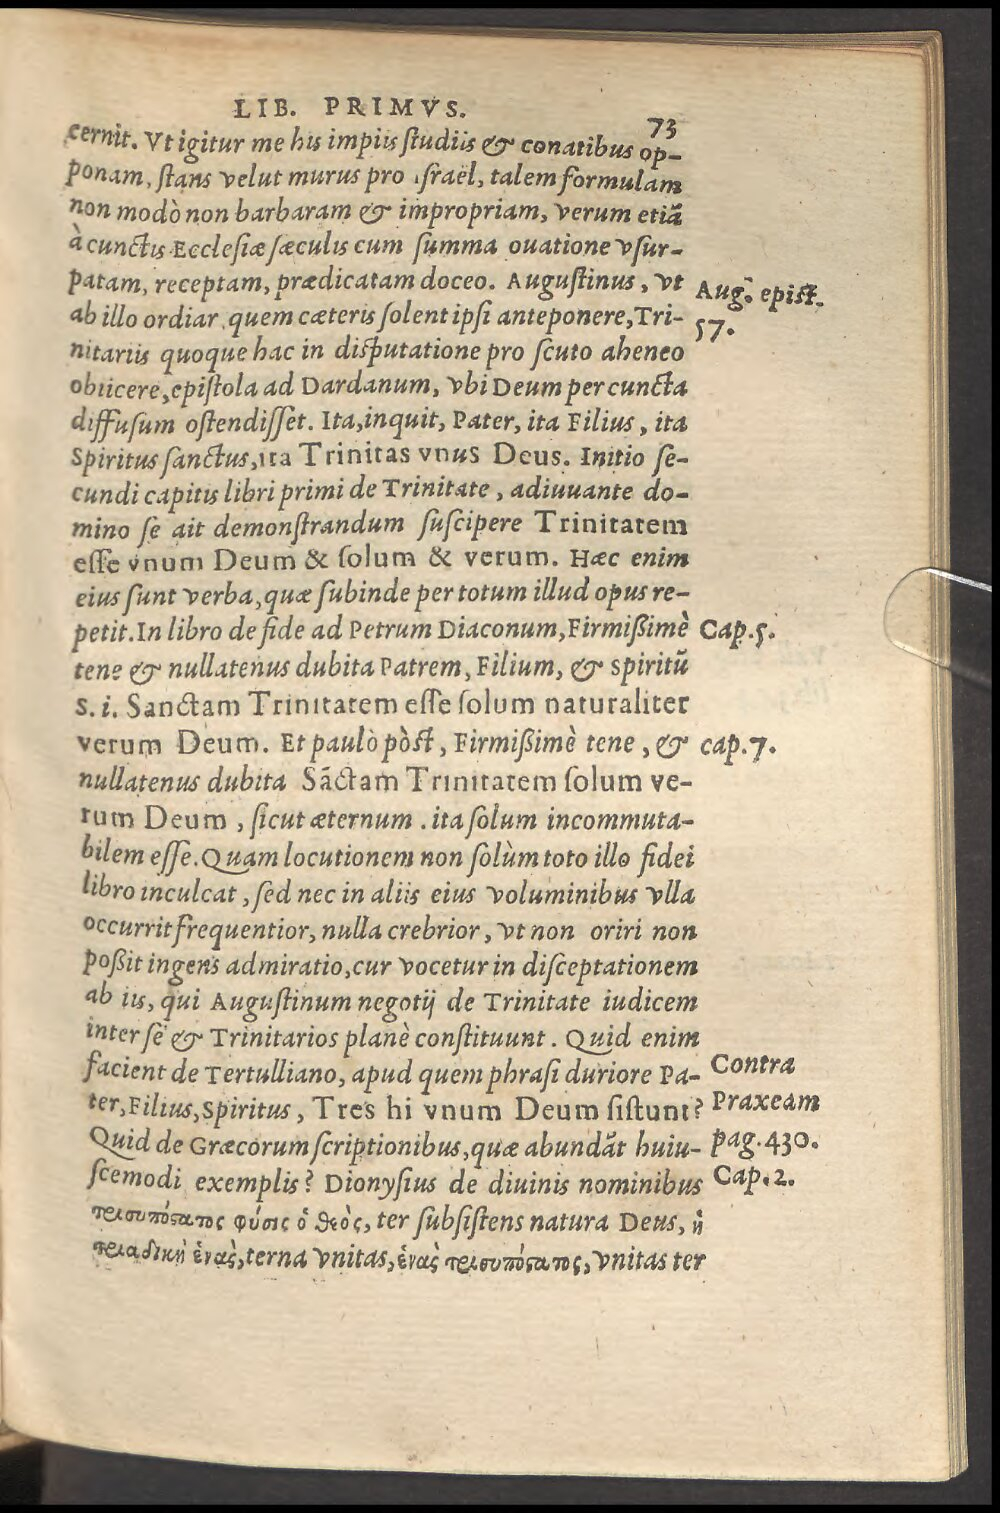 LIB. PRIMVS.
73
cernit. Vt igitur me his impiis ſtudiis & conatibus op-
ponam, ſtans velut murus pro Iſrael, talem formulam
non modò non barbaram & impropriam, verum etiā
à cunctis Eccleſiæ ſæculis cum ſumma ouatione vſur-
patam, receptam, prædicatam doceo. Auguſtinus, vt
Aug. epiſt.
57.
ab illo ordiar, quem cæteris ſolent ipſi anteponere, Tri-
nitariis quoque hac in diſputatione pro ſcuto aheneo
obiicere, epiſtola ad Dardanum, vbi Deum per cuncta
diffuſum oſtendiſſet. Ita, inquit, Pater, ita Filius, ita
Spiritus ſanctus, ita Trinitas vnus Deus. Initio ſe-
cundi capitis libri primi de Trinitate, adiuuante do-
mino ſe ait demonſtrandum ſuſcipere Trinitatem
eſſe vnum Deum & ſolum & verum. Hæc enim
eius ſunt verba, quæ ſubinde per totum illud opus re-
petit. In libro de fide ad Petrum Diaconum, Firmißimè
Cap. 5.
tene & nullatenus dubita Patrem, Filium, & Spiritū
S. i. Sanctam Trinitatem eſſe ſolum naturaliter
verum Deum. Et paulò pòſt, Firmißimè tene, &
cap. 7.
nullatenus dubita Sāctam Trinitatem ſolum ve-
rum Deum, ſicut æternum. ita ſolum incommuta-
bilem eſſe. Quam locutionem non ſolùm toto illo fidei
libro inculcat, ſed nec in aliis eius voluminibus vlla
occurrit frequentior, nulla crebrior, vt non oriri non
poßit ingens admiratio, cur vocetur in diſceptationem
ab iis, qui Auguſtinum negotij de Trinitate iudicem
inter ſe & Trinitarios planè conſtituunt. Quid enim
facient de Tertulliano, apud quem phraſi duriore Pa-
Contra
Praxeam
pag. 430.
ter, Filius, Spiritus, Tres hi vnum Deum ſiſtunt?
Quid de Græcorum ſcriptionibus, quæ abundāt huiu-
ſcemodi exemplis? Dionyſius de diuinis nominibus
Cap. 2.
τρισυπόστατος φύσις ὁ θεὸς, ter ſubſiſtens natura Deus, ἡ
τριαδικὴ ἑνὰς, terna vnitas, ἑνὰς τρισυπόστατος, vnitas ter